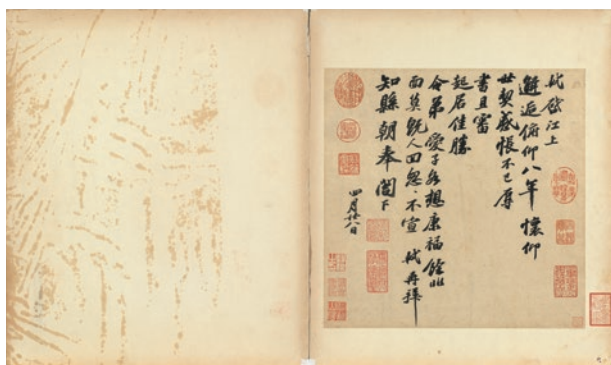 軾啟江上
邂逅俯仰八年懷仰
世契感悵不已辱
書且審
起居佳勝
令弟愛子各想康福餘非
面莫既人回忽忽不宣軾再拜
知縣朝奉閣下
四月廿八日